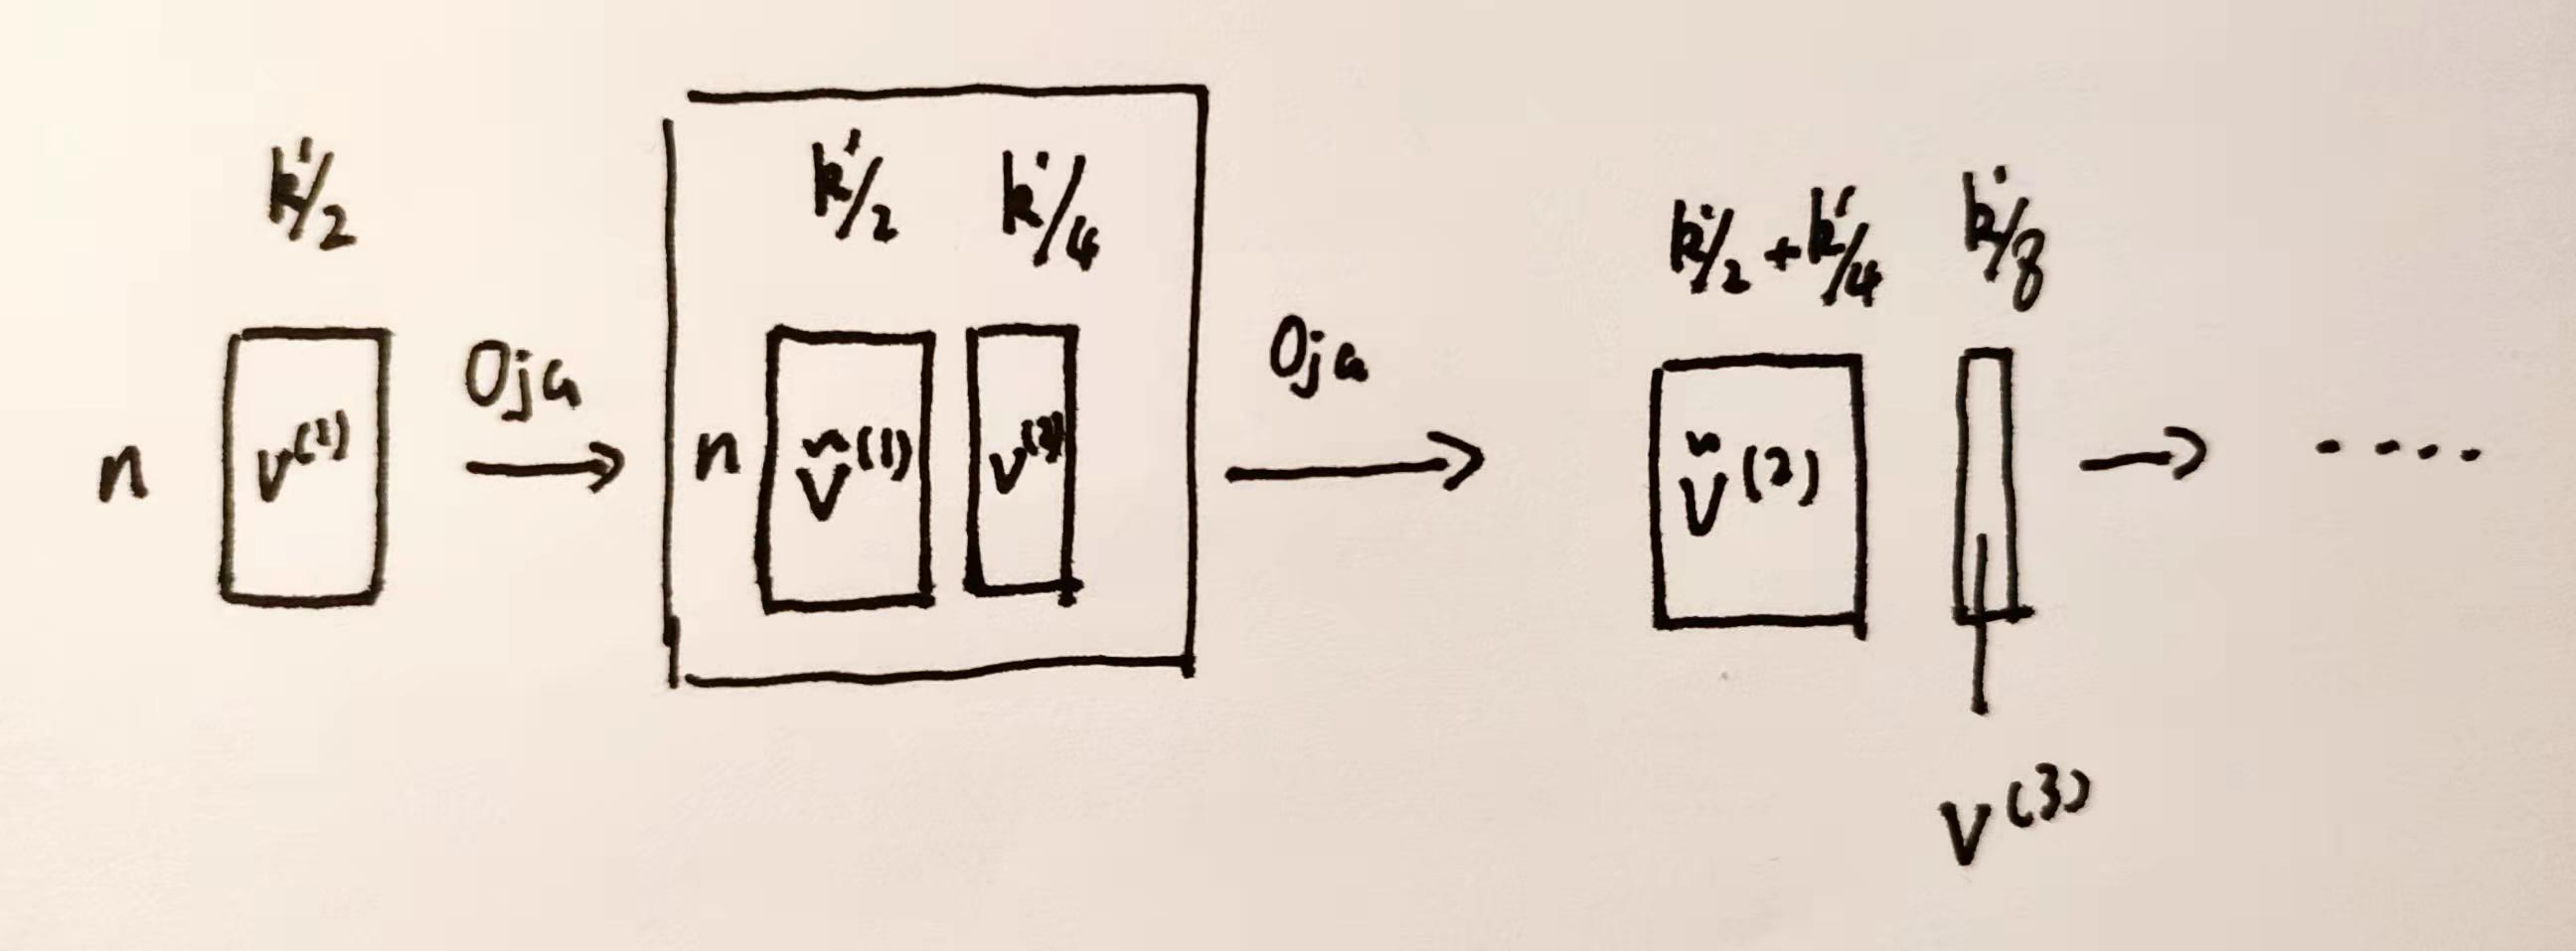 k'/2
n
V⁽¹⁾
Oja
→
k'/2 k'/4
n
Ṽ⁽¹⁾ V⁽²⁾
Oja
→
k'/2 + k'/4 k'/8
Ṽ⁽²⁾
V⁽³⁾
→ .....